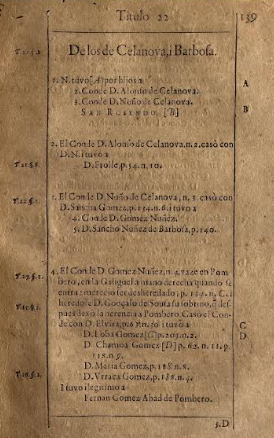 Titulo 22
139
De los de Celanova, i Barbosa.
1. N. tuvo [A] por hijos a
2. Conde D. Alonso de Celanova.
3. Conde D. Nuño de Celanova.
SAN RUSENDO. [B]
A
B
2. El Conde D. Alonso de Celanova, n. 2. casò con
D. N. tuvo a
D. Froile, p. 54. n. 10.
3. El Conde D. Nuño de Celanova, n. 3. casò con
D. Sancha Gomez, p. tuvo a
4. Conde D. Gomez Nuñez.
5. D. Sancho Nuñez de Barbosa, p. 140.
4. El Conde D. Gomez Nuñez, n. 4. yace en Pom
bero, en la Galigue la mano derecha quando se
entra: merecio ser desheredado, p. C. i
heredole D. Gonçalo de Sousa su sobrino, i des
pues dexò la herencia a Pombero. Casò el Con
de con D. Elvira, tuvo a
D. Loba Gomez [C] p. 203. n. 2.
D. Chamoa Gomez [D] p. 62. n. 11. p.
118. n. 9.
D. Maria Gomez, p. 188. n. 8.
D. Vrraca Gomez, p. 188. n. 4.
I tuvo ilegitimo a
Fernan Gomez Abad de Pombero.
C
D
5. D